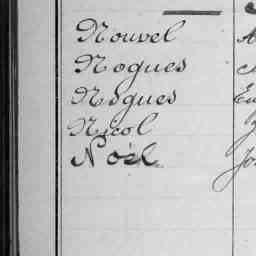 Nouvel
Nogues
Nogues
Nicol
Noël